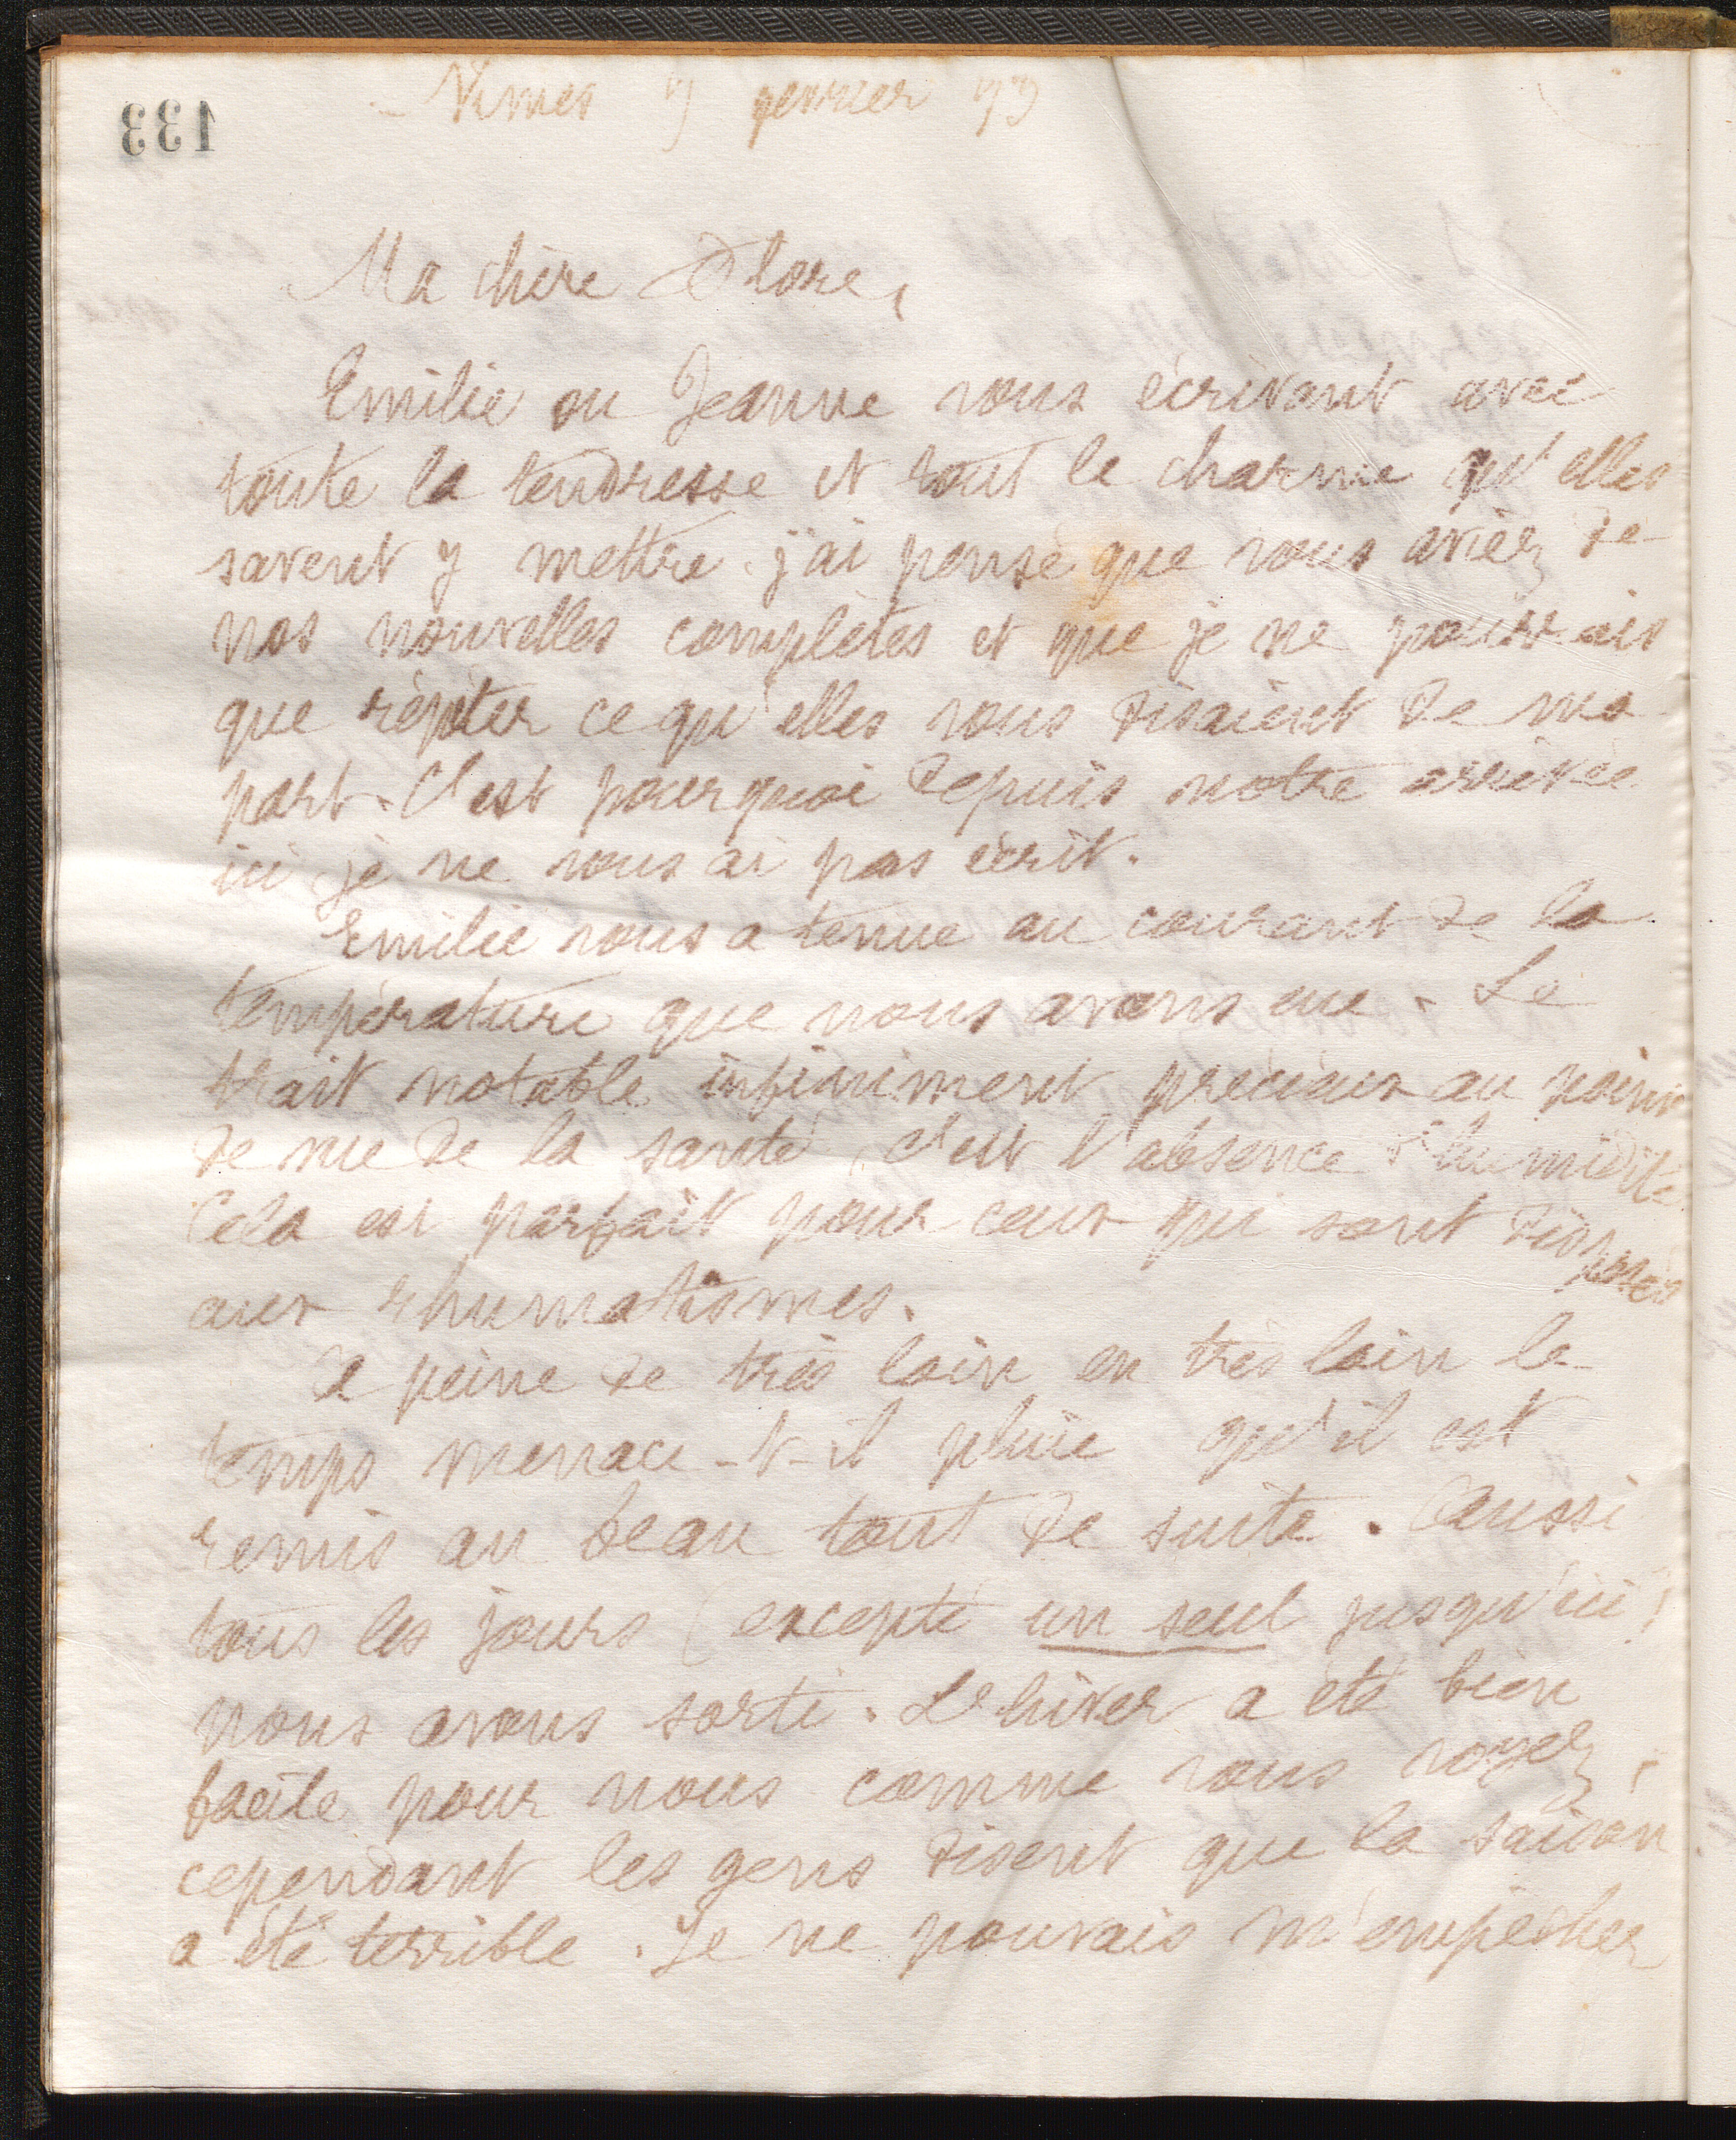 133
Nimes 7 fevrier 93
Ma chère Flore,
Emilie ou Jeanne vous écrivant avec
toute la tendresse et tout le charme qu'elles
savent y mettre j'ai pensé que vous aviez de
nos nouvelles complètes et que je ne pourrais
que répéter ce qu'elles vous disaient de ma
part. C'est pourquoi depuis notre arrivée
ici je ne vous ai pas écrit.
Emilie vous a tenue au courant de la
température que nous avons eue. Le
trait notable infiniment précieux au point
de vue de la santé, c'est l'absence d'humidité
Cela est parfait pour ceux qui sont disposés
aux rhumatismes.
A peine de très loin en très loin le
temps menace-t-il pluie qu'il est
remis au beau tout de suite. Aussi
tous les jours (excepté un seul jusqu'ici)
nous avons sorti. L'hiver a été bien
facile pour nous comme vous voyez,
cependant les gens disent que la saison
a été terrible. Je ne pouvais m'empecher